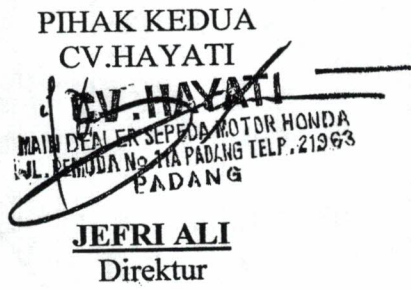 PIHAK KEDUA
CV.HAYATI
CV. HAYATI
MAIN DEALER SEPEDA MOTOR HONDA
JL. PEMUDA No. 11A PADANG TELP. 21963
PADANG
JEFRI ALI
Direktur